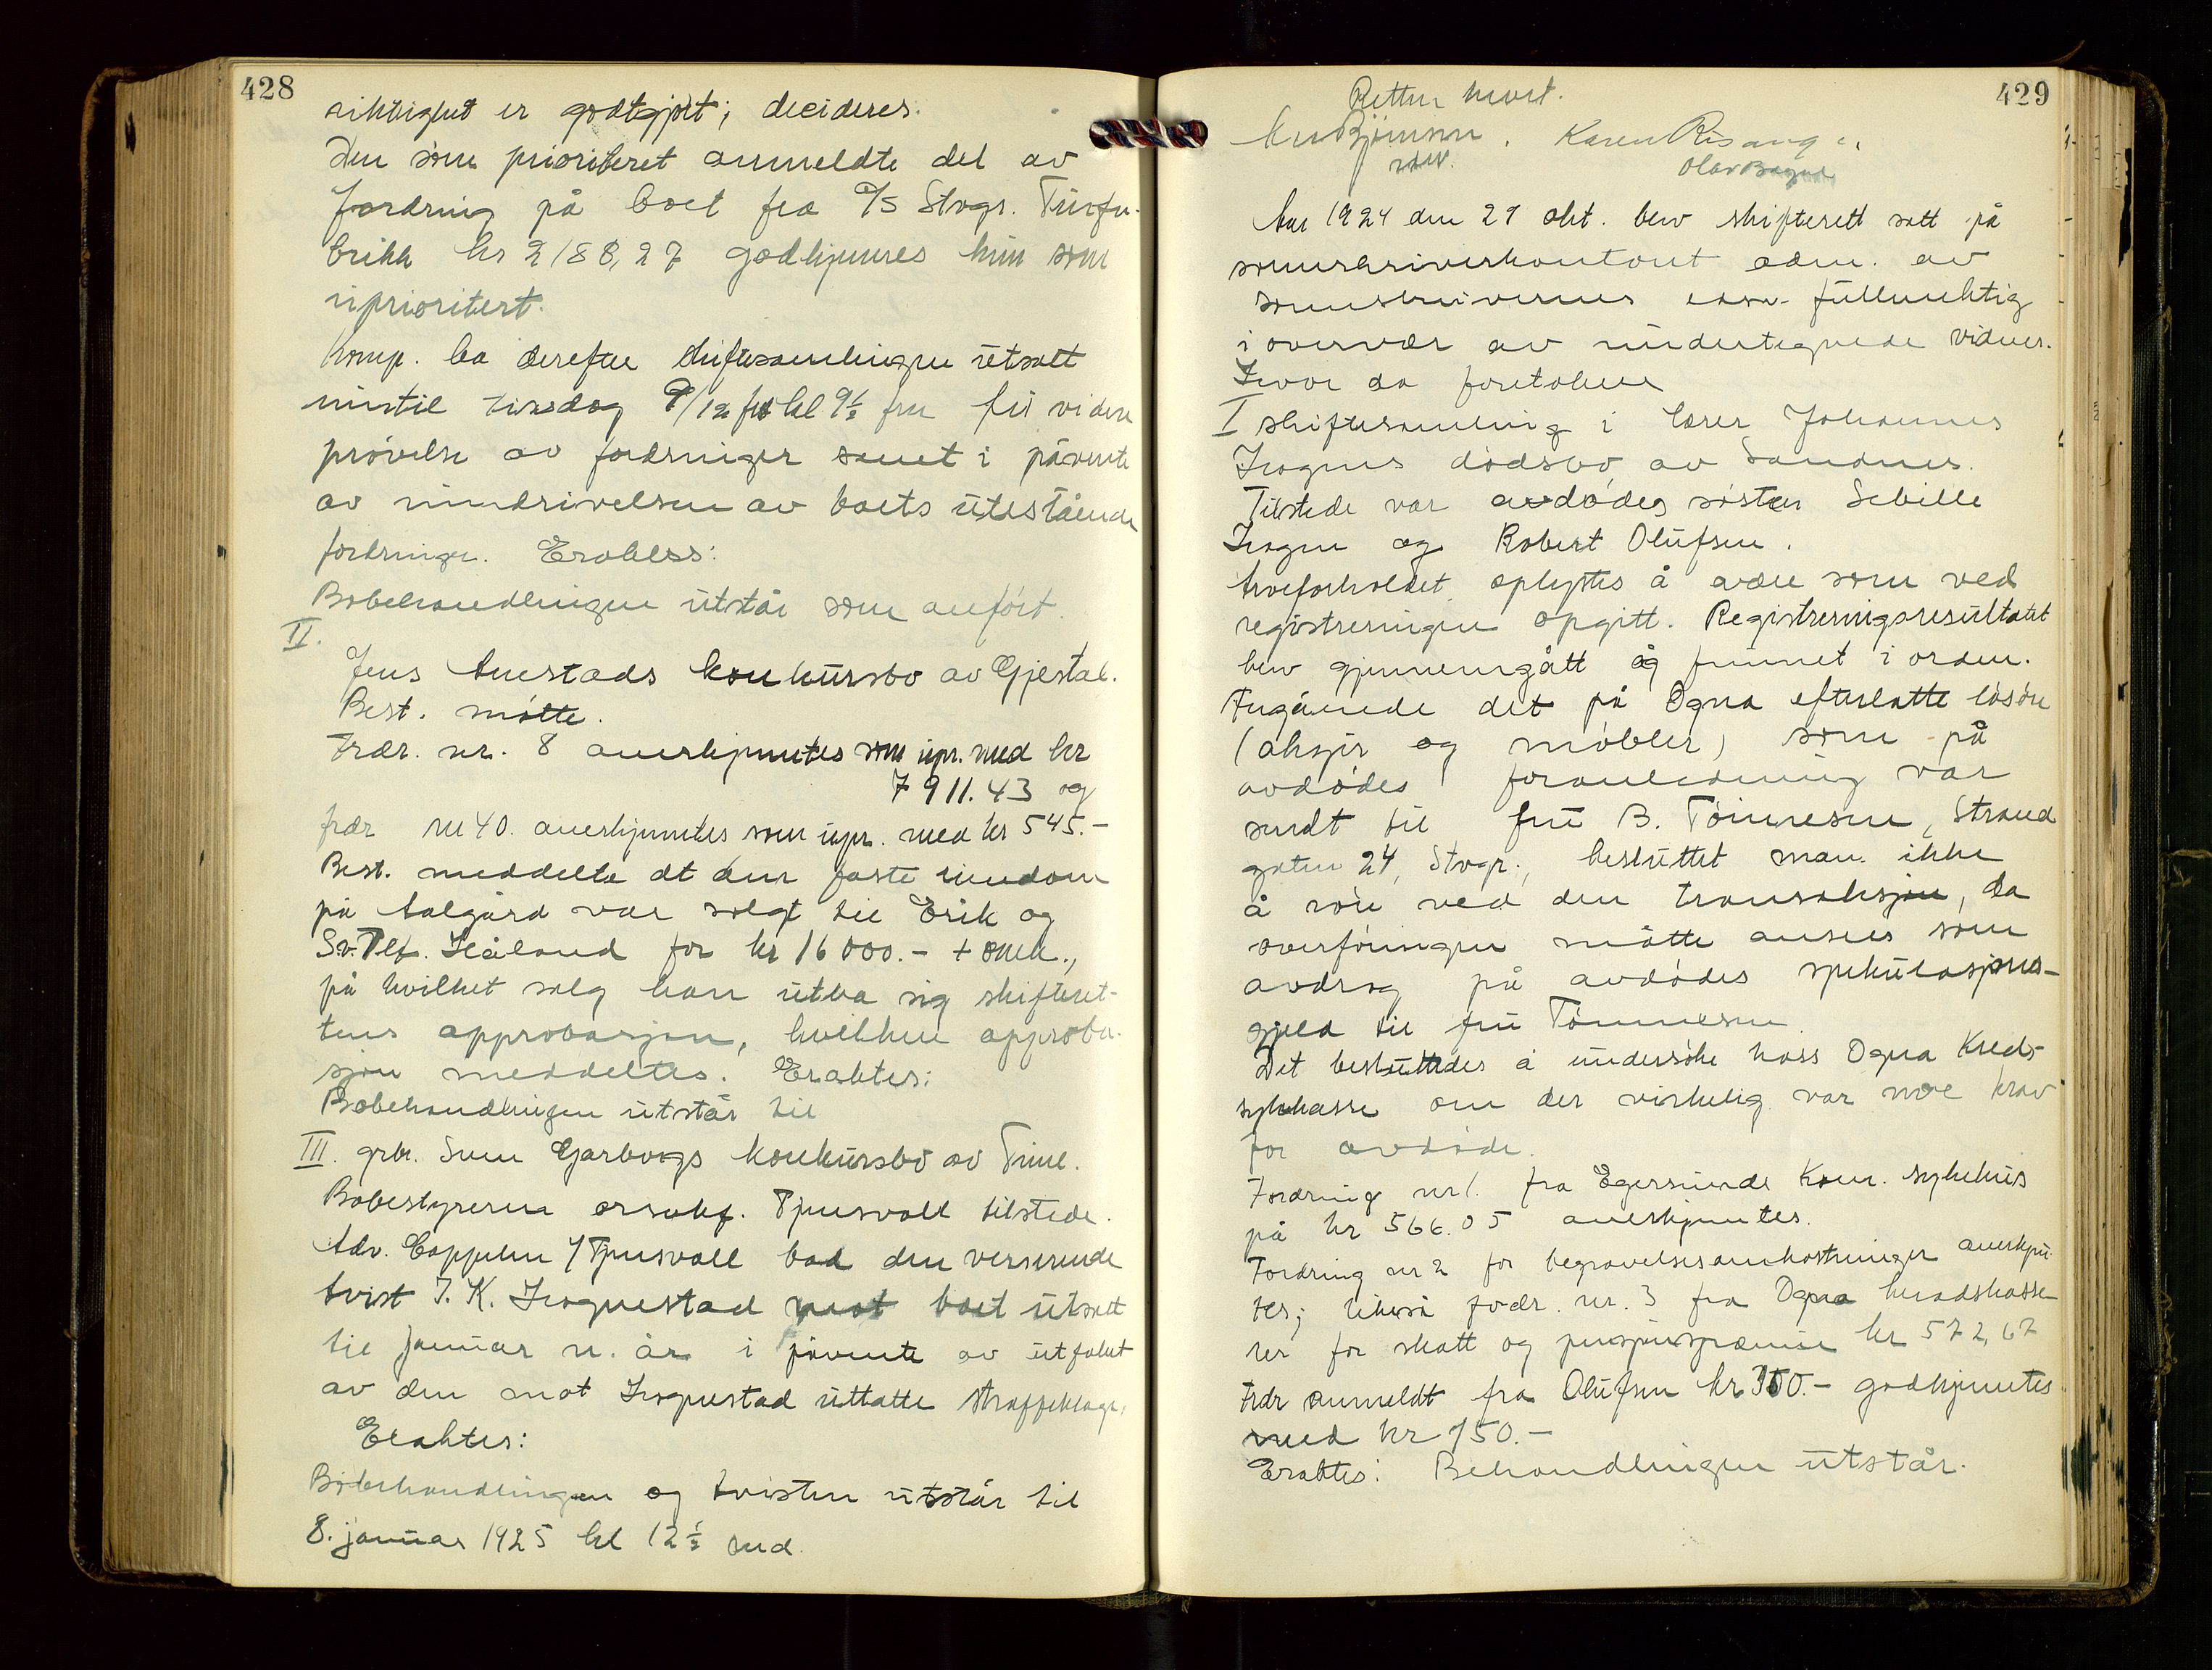 428
riktighet er godtgjort; decideres.
Den som prioriteret anmeldte del av
fordring på boet fra A/S Stvgr. Tinfa-
brikk kr 2188,27 godkjennes kun som
uprioritert.
Komp. ba derefter skiftesamlingen utsatt
inntil tirsdag 9/12 kl 9½ fm for videre
prøvelse av fordringer samt i påvente
av inndrivelsen av boets utestående
fordringer. Eraktes:
Bobehandlingen utstår som anført.
II.
Jens Auestads konkursbo av Gjestal.
Best. møtte.
Fordr. nr. 8 anerkjentes som upr. med kr
7911.43 og
fordr nr 40. anerkjentes som upr. med kr 545.-
Best. meddelte at den faste eiendom
på Aalgård var solgt til Erik og
Sv. Håland for kr 16000.- + omk.,
på hvilket salg han utba sig skifteret-
tens approbasjon, hvilken approba-
sjon meddeltes. Eraktes:
Bobehandlingen utstår til
III. grbr. Sven Garborgs konkursbo av Time.
Bobestyreren orsakf. Tjensvoll tilstede.
Adv. Cappelen / Tjensvoll bad den verserende
tvist T. K. Hognestad mot boet utsatt
til januar n. år i påvente av utfaldet
av den mot Hognestad uttatte straffeklage.
Eraktes:
Bobehandlingen og tvisten utstår til
8. januar 1925 kl 12½ md.
429
Retten hevet.
Bjørnsen. Karen Risanger.
Olav
Aar 1924 den 29 okt. blev skifterett satt på
sorenskriverkontoret adm. av
sorenskriverens edsv. fullmektig
i overvær av undertegnede vidner.
Hvor da foretokes
I skiftesamling i lærer Johannes
Hognes dødsbo av Sandnes.
Tilstede var avdødes søster Sebille
Hogne og Robert Olufsen.
Arveforholdet oplystes å være som ved
registreringen opgitt. Registreringsresultatet
blev gjennemgått og funnet i orden.
Angående det på Ogna efterlatte løsøre
(aksjer og møbler) som på
avdødes foranledning var
sendt til fru B. Tønnesen, Strand
gaten 24, Stvgr., besluttet man ikke
å røre ved den transaksjon, da
overføringen måtte ansees som
avdrag på avdødes spekulasjons-
gjeld til fru Tønnesen.
Det besluttedes å undersøke hoss Ogna Kreds-
sykekasse om der virkelig var noe krav
for avdøde.
Fordring nr 1. fra Egersunds Kom. sykehus
på kr 566.05 anerkjentes.
Fordring nr 2 for begravelsesomkostninger anerkjen-
tes; likeså fordr. nr. 3 fra Ogna heradskasse-
rer for skatt og pensjonspremie kr 572,67
Fordr anmeldt fra Olufsen kr 350.- godkjentes
med kr 150.-
Eraktes: Behandlingen utstår.